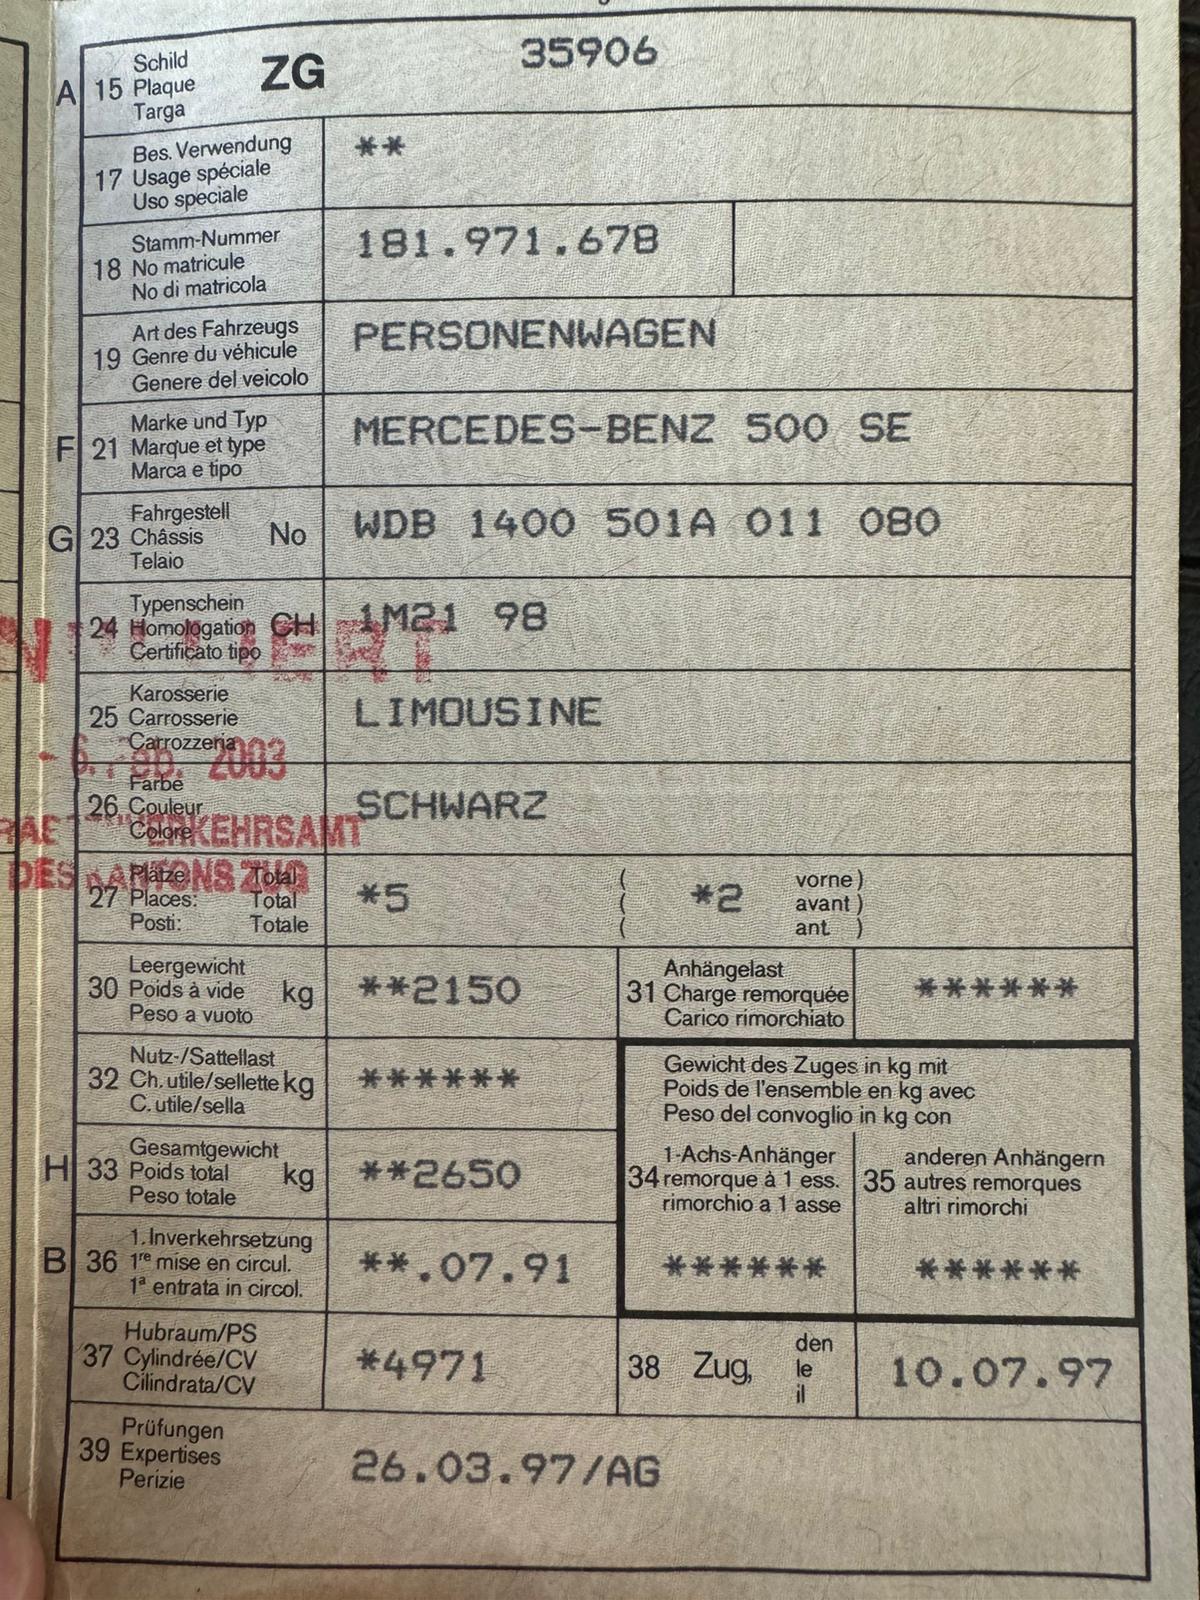 A 15 Schild
Plaque
Targa
ZG 35906
17 Bes. Verwendung
Usage spéciale
Uso speciale
**
18 Stamm-Nummer
No matricule
No di matricola
181.971.678
19 Art des Fahrzeugs
Genre du véhicule
Genere del veicolo
PERSONENWAGEN
F 21 Marke und Typ
Marque et type
Marca e tipo
MERCEDES-BENZ 500 SE
G 23 Fahrgestell
Châssis No
Telaio
WDB 1400 501A 011 080
24 Typenschein
Homologation CH
Certificato tipo
1M21 98
25 Karosserie
Carrosserie
Carrozzeria
LIMOUSINE
- 6. Feb. 2003
26 Farbe
Couleur
Colore
SCHWARZ
VERKEHRSAMT
DES KANTONS ZUG
27 Plätze: Total
Places: Total
Posti: Totale
*5 ( *2 vorne )
( avant )
( ant. )
30 Leergewicht
Poids à vide kg
Peso a vuoto
**2150
31 Anhängelast
Charge remorquée
Carico rimorchiato
******
32 Nutz-/Sattellast
Ch. utile/sellette kg
C. utile/sella
******
H 33 Gesamtgewicht
Poids total kg
Peso totale
**2650
Gewicht des Zuges in kg mit
Poids de l'ensemble en kg avec
Peso del convoglio in kg con
34 1-Achs-Anhänger
remorque à 1 ess.
rimorchio a 1 asse
******
35 anderen Anhängern
autres remorques
altri rimorchi
******
B 36 1. Inverkehrsetzung
1re mise en circul.
1a entrata in circol.
**.07.91
37 Hubraum/PS
Cylindrée/CV
Cilindrata/CV
*4971
38 Zug, den
le
il
10.07.97
39 Prüfungen
Expertises
Perizie
26.03.97/AG